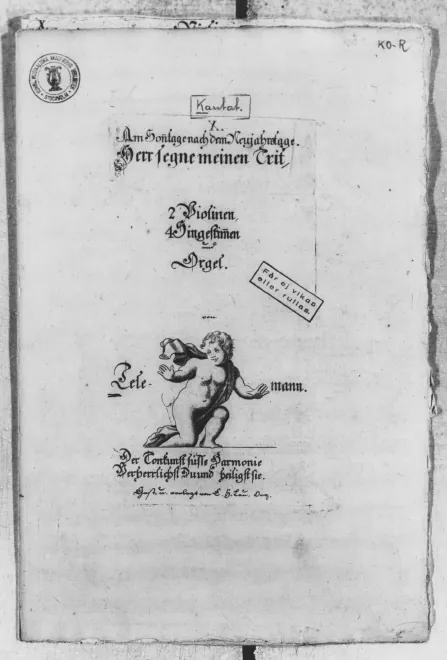 KO-R
Kantat.
X.
Am Soñtage nach dem Neujahrstage.
Herr segne meinen Trit
2 Violinen
4 Singestim̃en
und
Orgel.
Får ej vikas
eller rullas.
von
Tele- mann.
Der Tonkunst süsse Harmonie
Verherrlichst Du und heiligst sie.